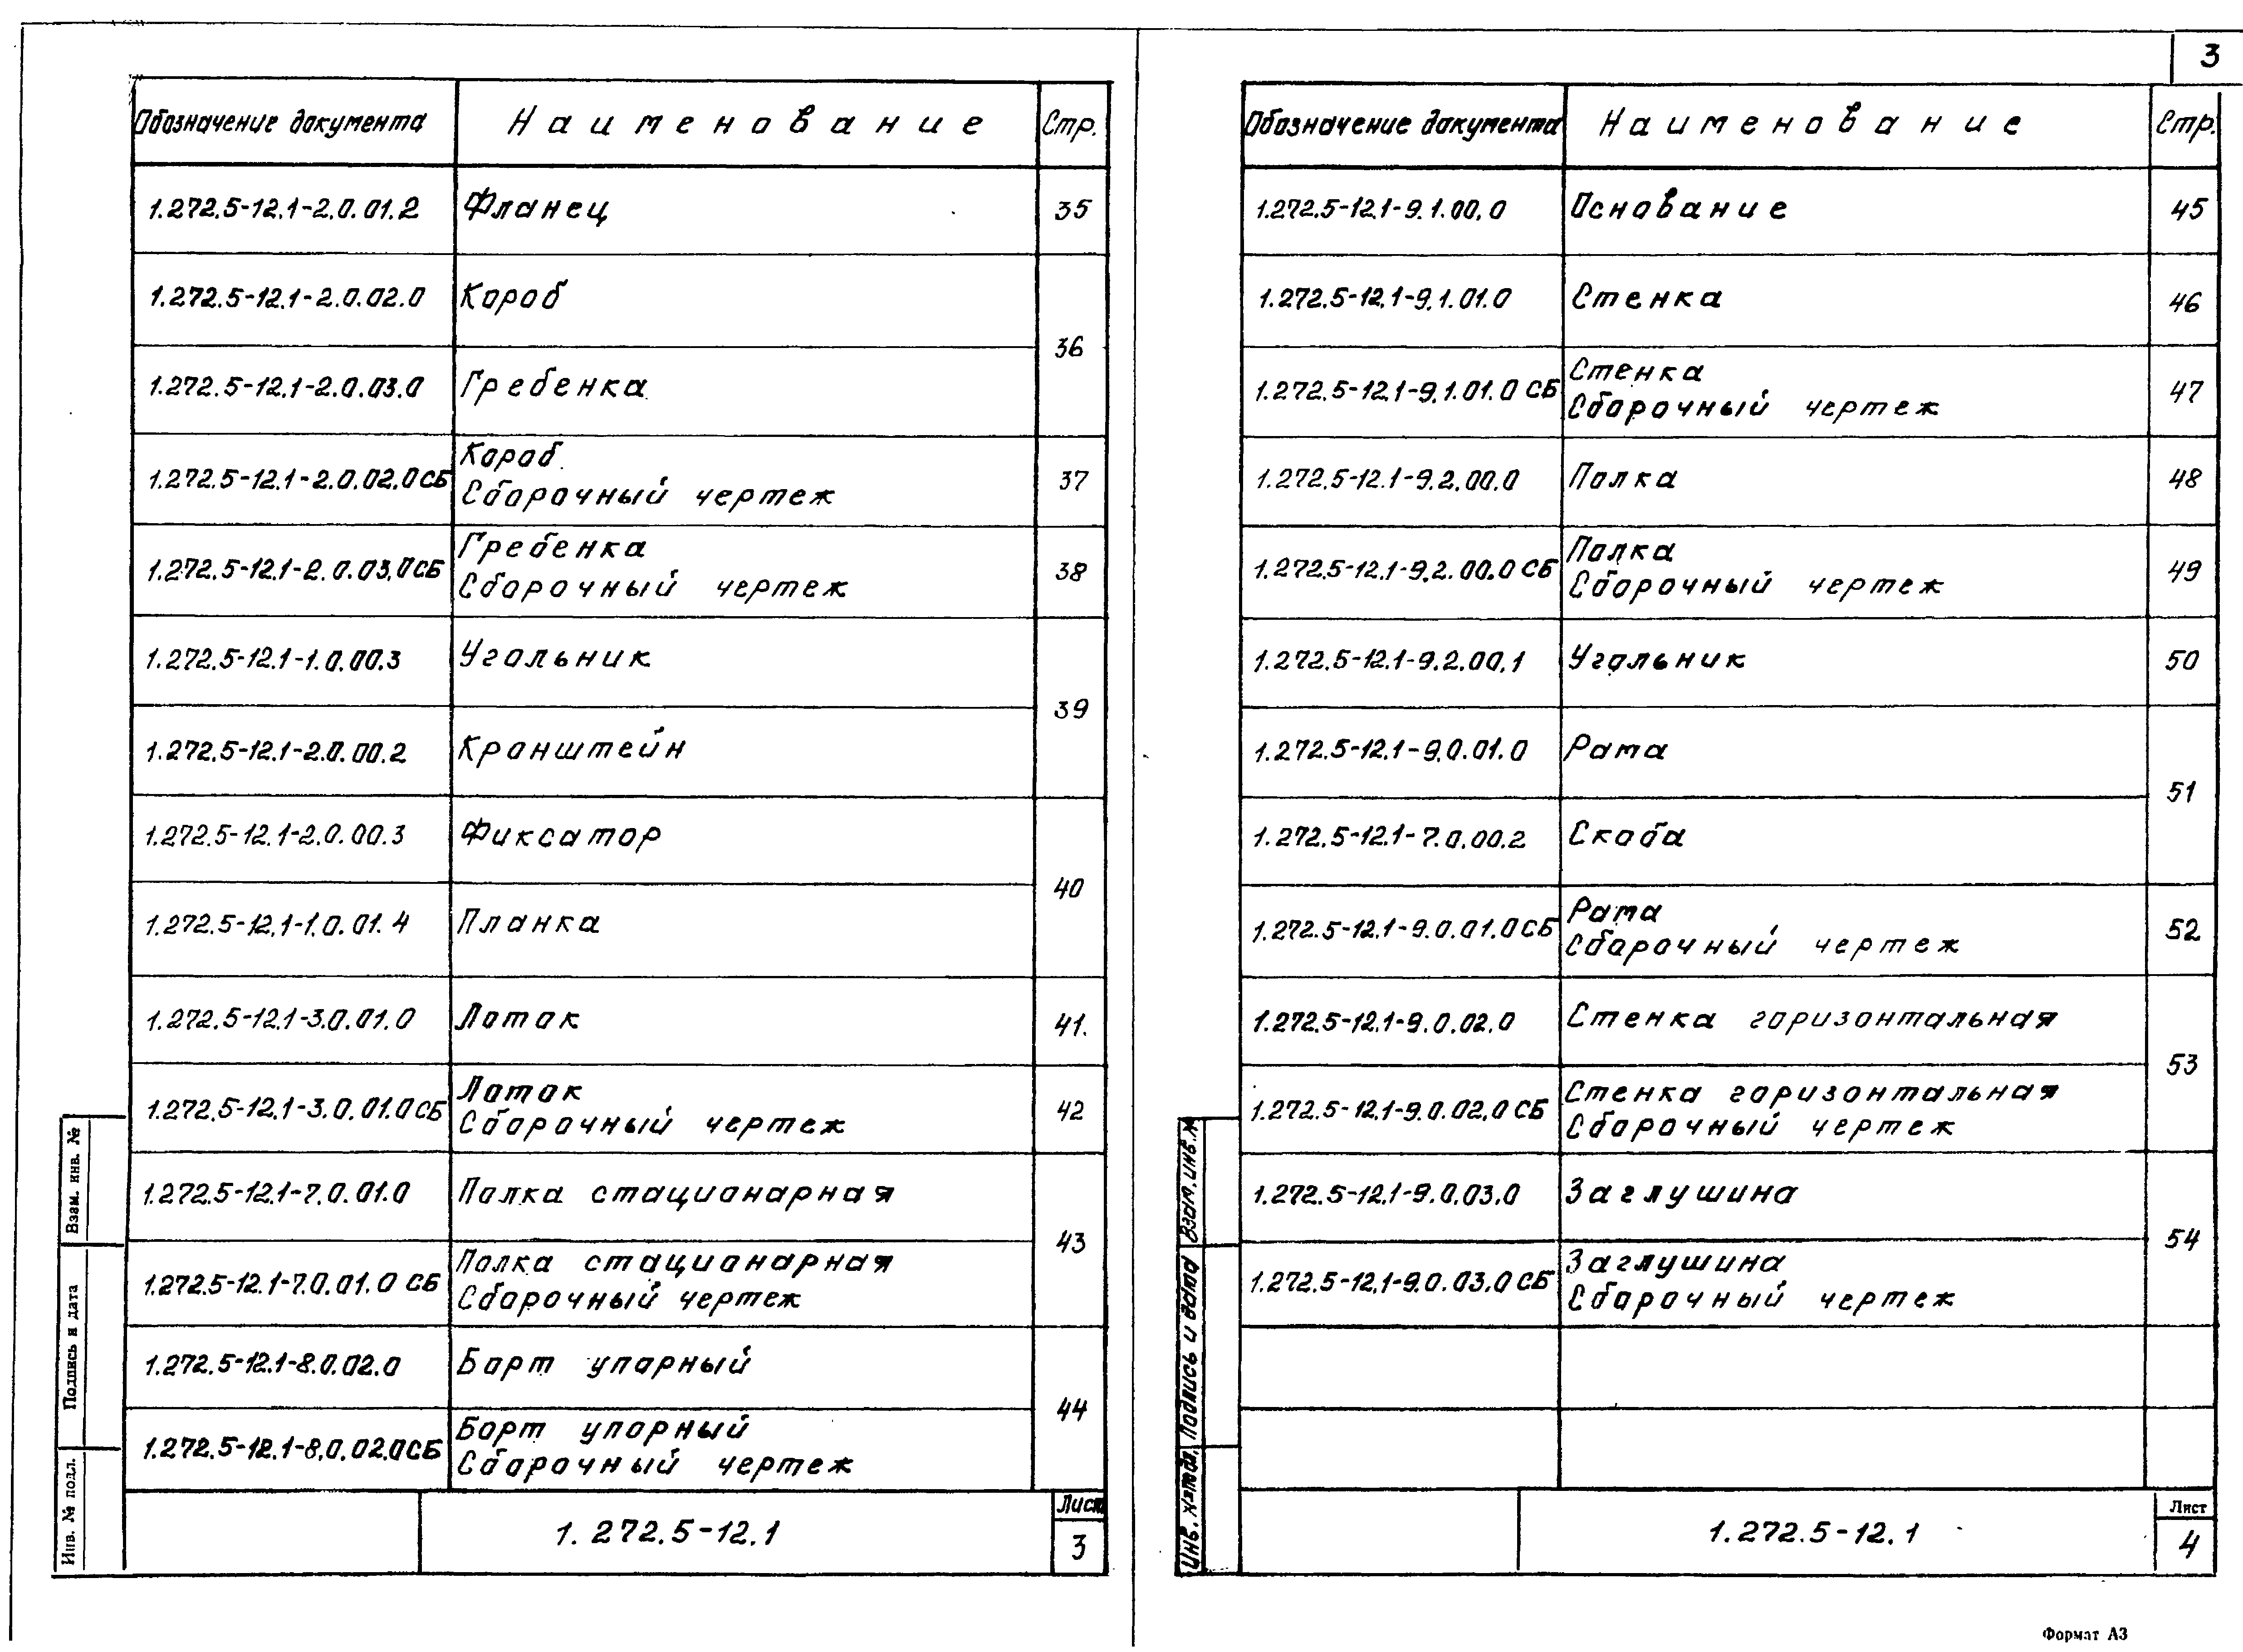 3
Обозначение документа Наименование Стр.
1.272.5-12.1-2.0.01.2 Фланец 35
1.272.5-12.1-2.0.02.0 Короб
36
1.272.5-12.1-2.0.03.0 Гребенка
1.272.5-12.1-2.0.02.0СБ Короб
Сборочный чертеж 37
1.272.5-12.1-2.0.03.0СБ Гребенка
Сборочный чертеж 38
1.272.5-12.1-1.0.00.3 Угольник
39
1.272.5-12.1-2.0.00.2 Кронштейн
1.272.5-12.1-2.0.00.3 Фиксатор
40
1.272.5-12.1-1.0.01.4 Планка
1.272.5-12.1-3.0.01.0 Лоток 41.
1.272.5-12.1-3.0.01.0СБ Лоток
Сборочный чертеж 42
1.272.5-12.1-7.0.01.0 Полка стационарная
43
1.272.5-12.1-7.0.01.0 СБ Полка стационарная
Сборочный чертеж
1.272.5-12.1-8.0.02.0 Борт упорный
44
1.272.5-12.1-8.0.02.0СБ Борт упорный
Сборочный чертеж
1.272.5-12.1
Лист
3
Взам. инв. №
Подпись и дата
Инв. № подл.
Обозначение документа Наименование Стр.
1.272.5-12.1-9.1.00.0 Основание 45
1.272.5-12.1-9.1.01.0 Стенка 46
1.272.5-12.1-9.1.01.0 СБ Стенка
Сборочный чертеж 47
1.272.5-12.1-9.2.00.0 Полка 48
1.272.5-12.1-9.2.00.0 СБ Полка
Сборочный чертеж 49
1.272.5-12.1-9.2.00.1 Угольник 50
1.272.5-12.1-9.0.01.0 Рама
51
1.272.5-12.1-7.0.00.2 Скоба
1.272.5-12.1-9.0.01.0СБ Рама
Сборочный чертеж 52
1.272.5-12.1-9.0.02.0 Стенка горизонтальная
53
1.272.5-12.1-9.0.02.0 СБ Стенка горизонтальная
Сборочный чертеж
1.272.5-12.1-9.0.03.0 Заглушина
54
1.272.5-12.1-9.0.03.0СБ Заглушина
Сборочный чертеж
1.272.5-12.1
Лист
4
Взам. инв. №
Подпись и дата
Инв. №
Формат А3